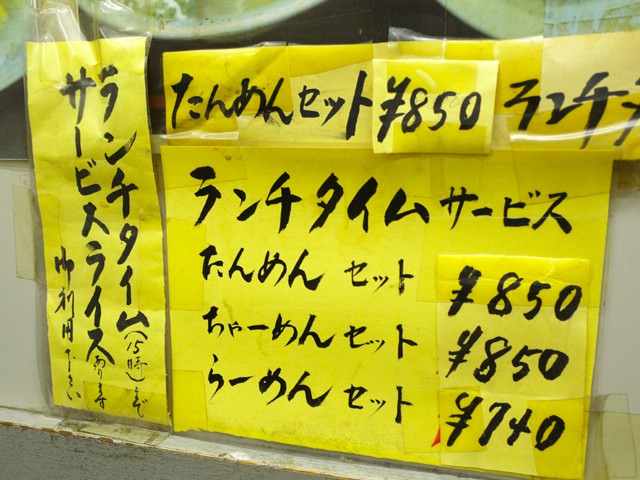 ランチタイム(15時)まで
サービスライスあります
御利用下さい
たんめんセット ¥850
ランチ
ランチタイム サービス
たんめん セット ¥850
ちゃーめん セット ¥850
らーめん セット ¥740